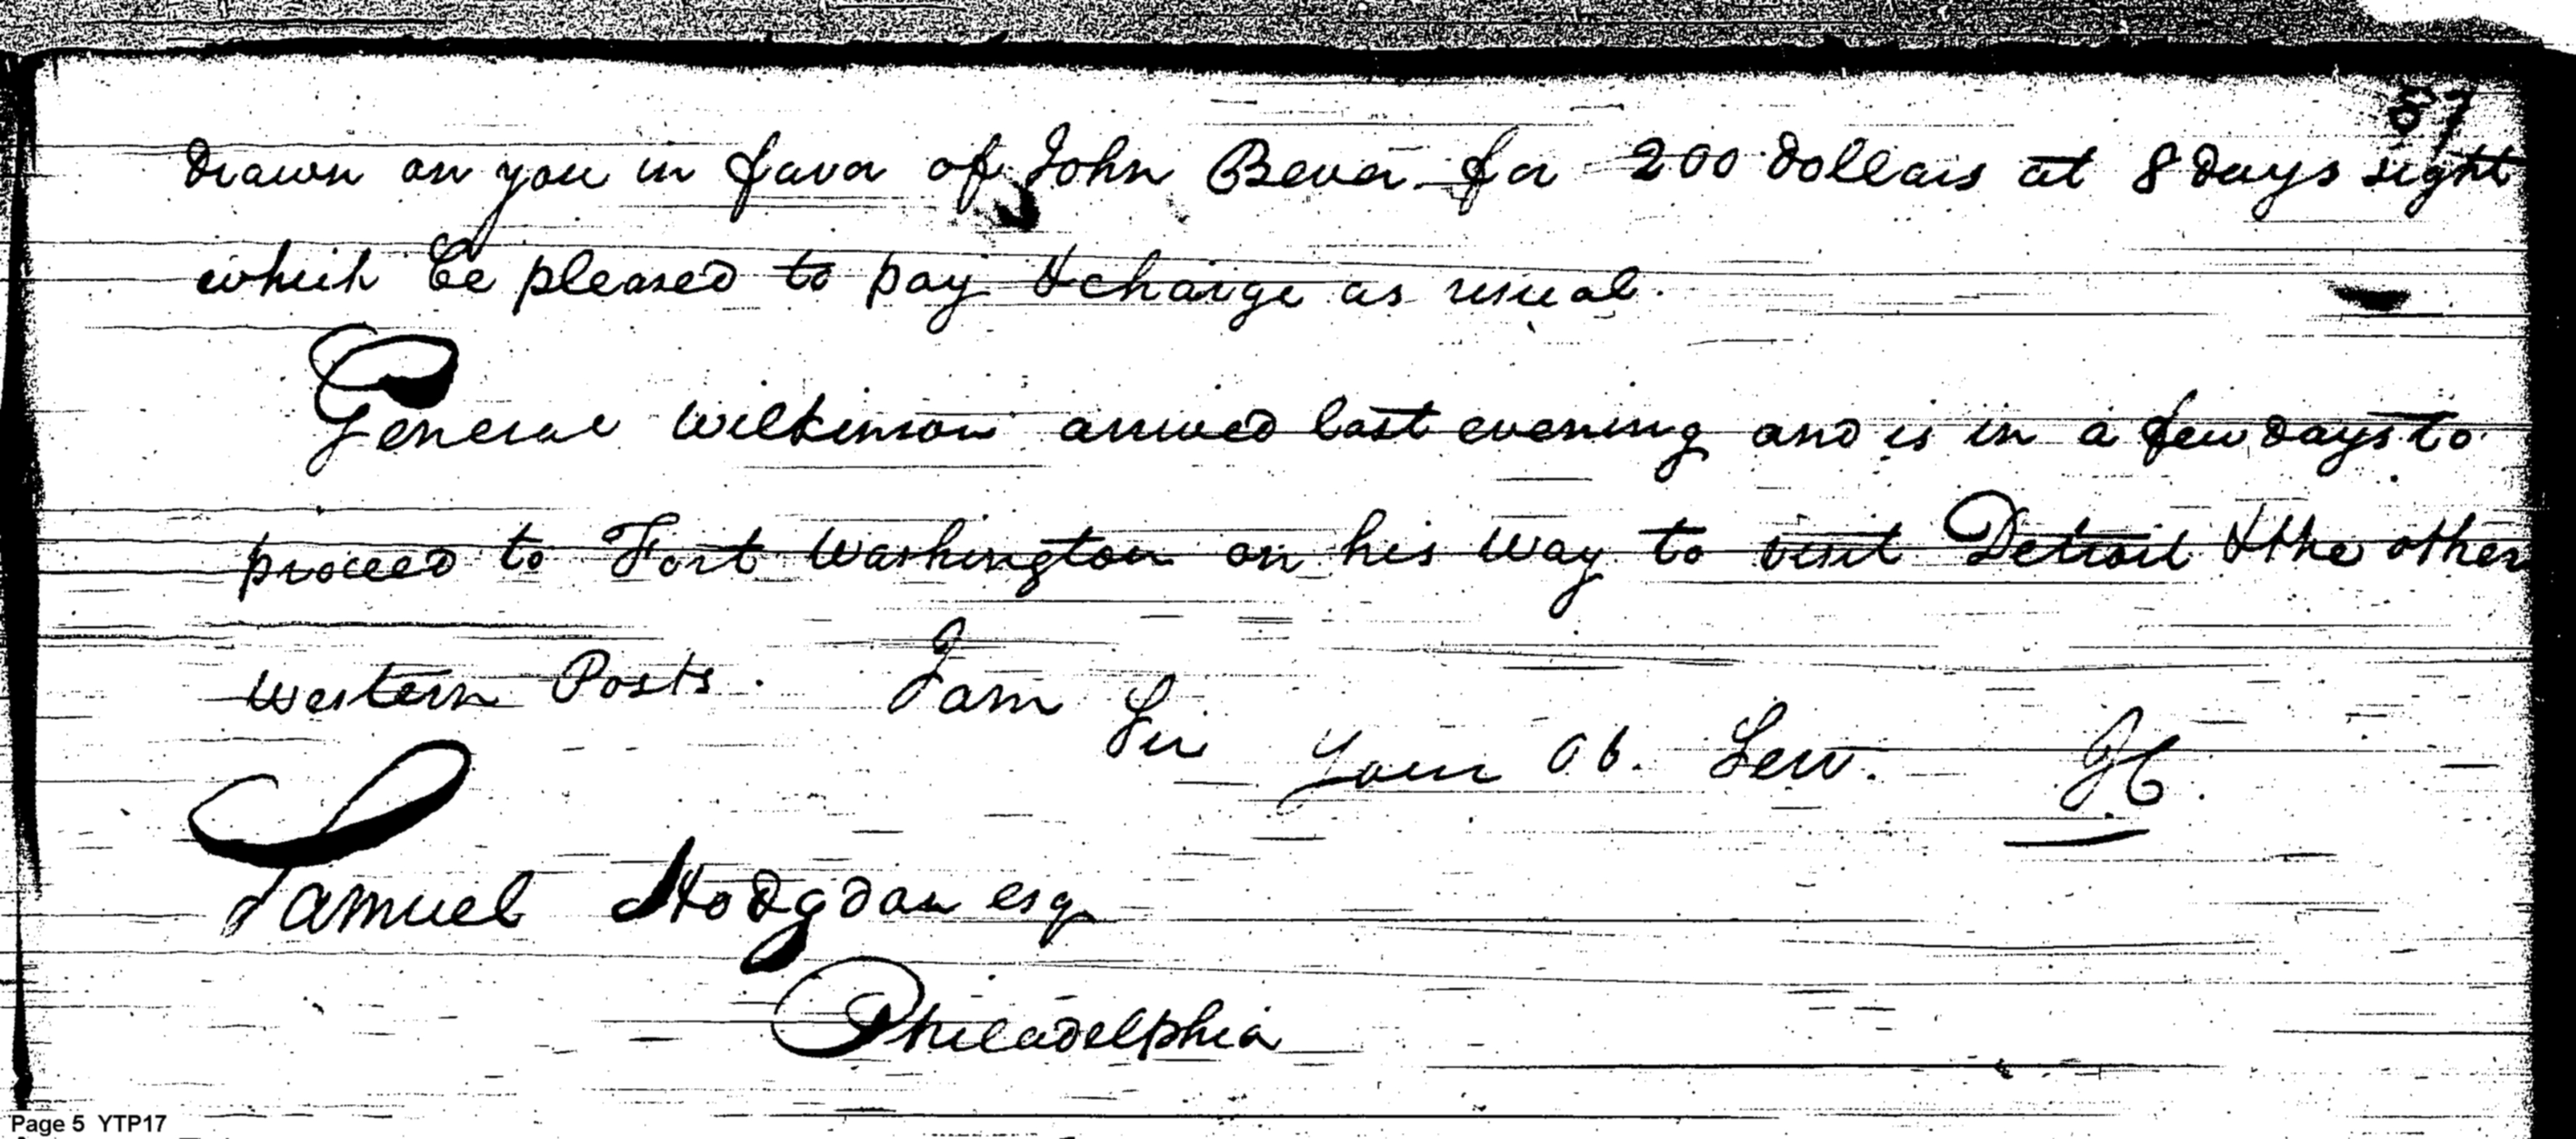 57
Drawn on you in favor of John Bever for 200 Dollars at 8 Days sight
which be pleased to pay & charge as usual.
General Wilkinson arrived last evening and is in a few days to
proceed to Fort Washington on his way to visit Detroit & the other
Western Posts. I am
Sir
Your Ob. Serv. IC.
Samuel Hodgdon esq
Philadelphia
Page 5 YTP17